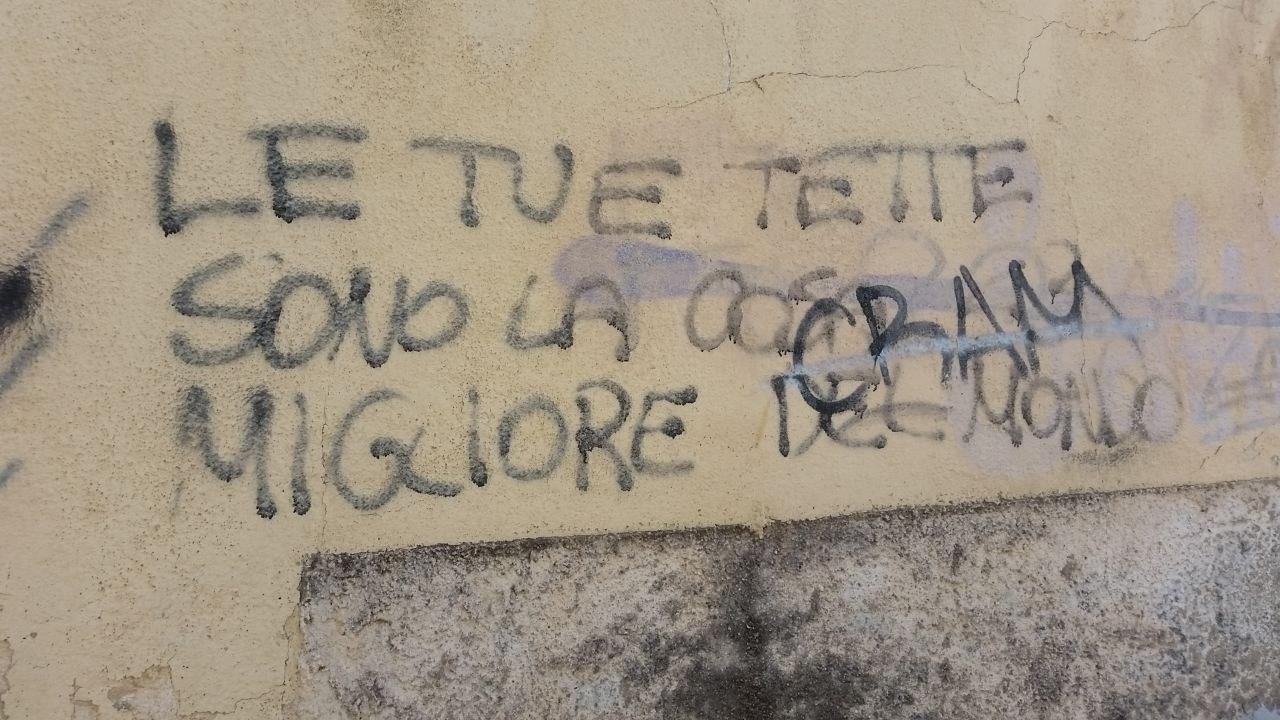 LE TUE TETTE
SONO LA COSA
MIGLIORE DEL MONDO